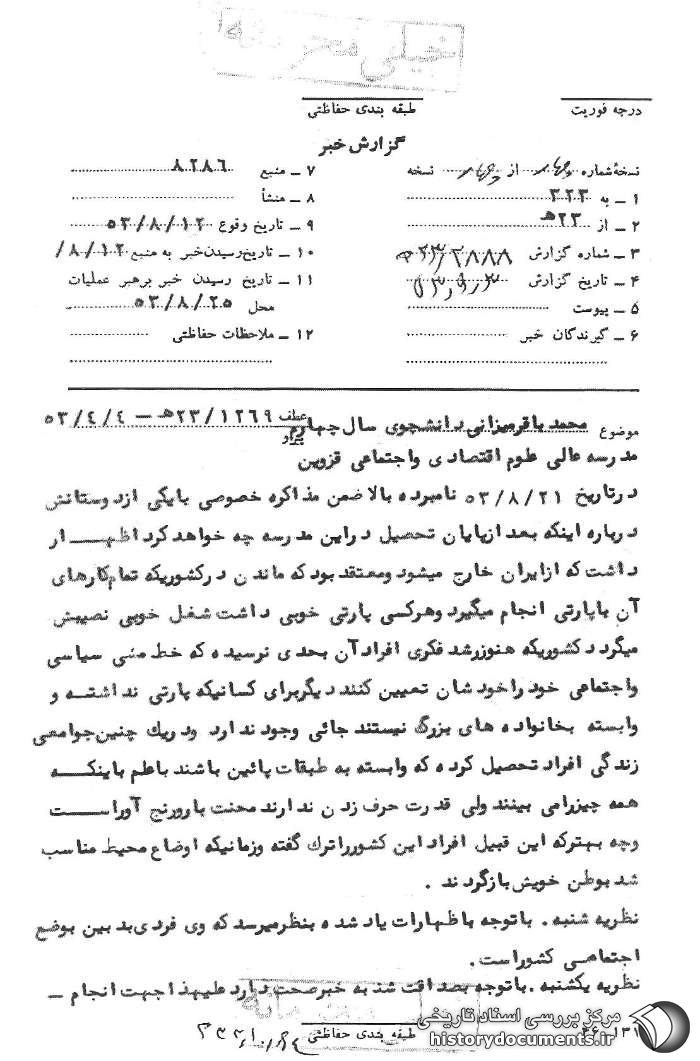 خیلی محرمانه
درجه فوریت
طبقه بندی حفاظتی
گزارش خبر
نسخه شماره چهار از چهار نسخه
۱ ـ به ۳۲۳
۲ ـ از ۲۳هـ
۳ ـ شماره گزارش
۴ ـ تاریخ گزارش
۵ ـ پیوست
۶ ـ گیرندگان خبر
۷ ـ منبع ۸۲۸۶
۸ ـ منشأ
۹ ـ تاریخ وقوع ۵۳/۸/۱۲
۱۰ ـ تاریخ رسیدن خبر به منبع ۸/۱۲/
۱۱ ـ تاریخ رسیدن خبر برهبر عملیات
محل ۵۳/۸/۲۵
۱۲ ـ ملاحظات حفاظتی
موضوع محمد باقر میزانی دانشجوی سال چهارم
عطف ۲۳/۱۲۶۹هـ – ۵۳/۴/۴
مدرسه عالی علوم اقتصادی و اجتماعی قزوین
درتاریخ ۵۳/۸/۲۱ نامبرده بالا ضمن مذاکره خصوصی بایکی ازدوستانش
درباره اینکه بعد ازپایان تحصیل دراین مدرسه چه خواهد کرد اظهار
داشت که ازایران خارج میشود ومعتقد بود که ماندن درکشوریکه تمام کارهای
آن باپارتی انجام میگیرد وهرکسی پارتی خوبی داشت شغل خوبی نصیبش
میگرد دکشوریکه هنوزرشد فکری افراد آن بحدی نرسیده که خط مشی سیاسی
واجتماعی خود راخودشان تعیین کنند دیگربرای کسانیکه پارتی نداشته و
وابسته بخانواده های بزرگ نیستند جائی وجود ندارد ودریك چنین جوامعی
زندگی افراد تحصیل کرده که وابسته به طبقات پائین باشند باعلم باینکه
همه چیزرامی بینند ولی قدرت حرف زدن ندارند محنت بارورنج آوراست
وچه بهترکه این قبیل افراد این کشورراترك گفته وزمانیکه اوضاع محیط مناسب
شد بوطن خویش بازگردند .
نظریه شنبه . باتوجه باظهارات یاد شده بنظرمیرسد که وی فردی بد بین بوضع
اجتماعی کشوراست .
نظریه یکشنبه . باتوجه بصداقت شنبه خبرصحت دارد علیهذا جهت انجام –
طبقه بندی حفاظتی
مرکز بررسی اسناد تاریخی
historydocuments.ir